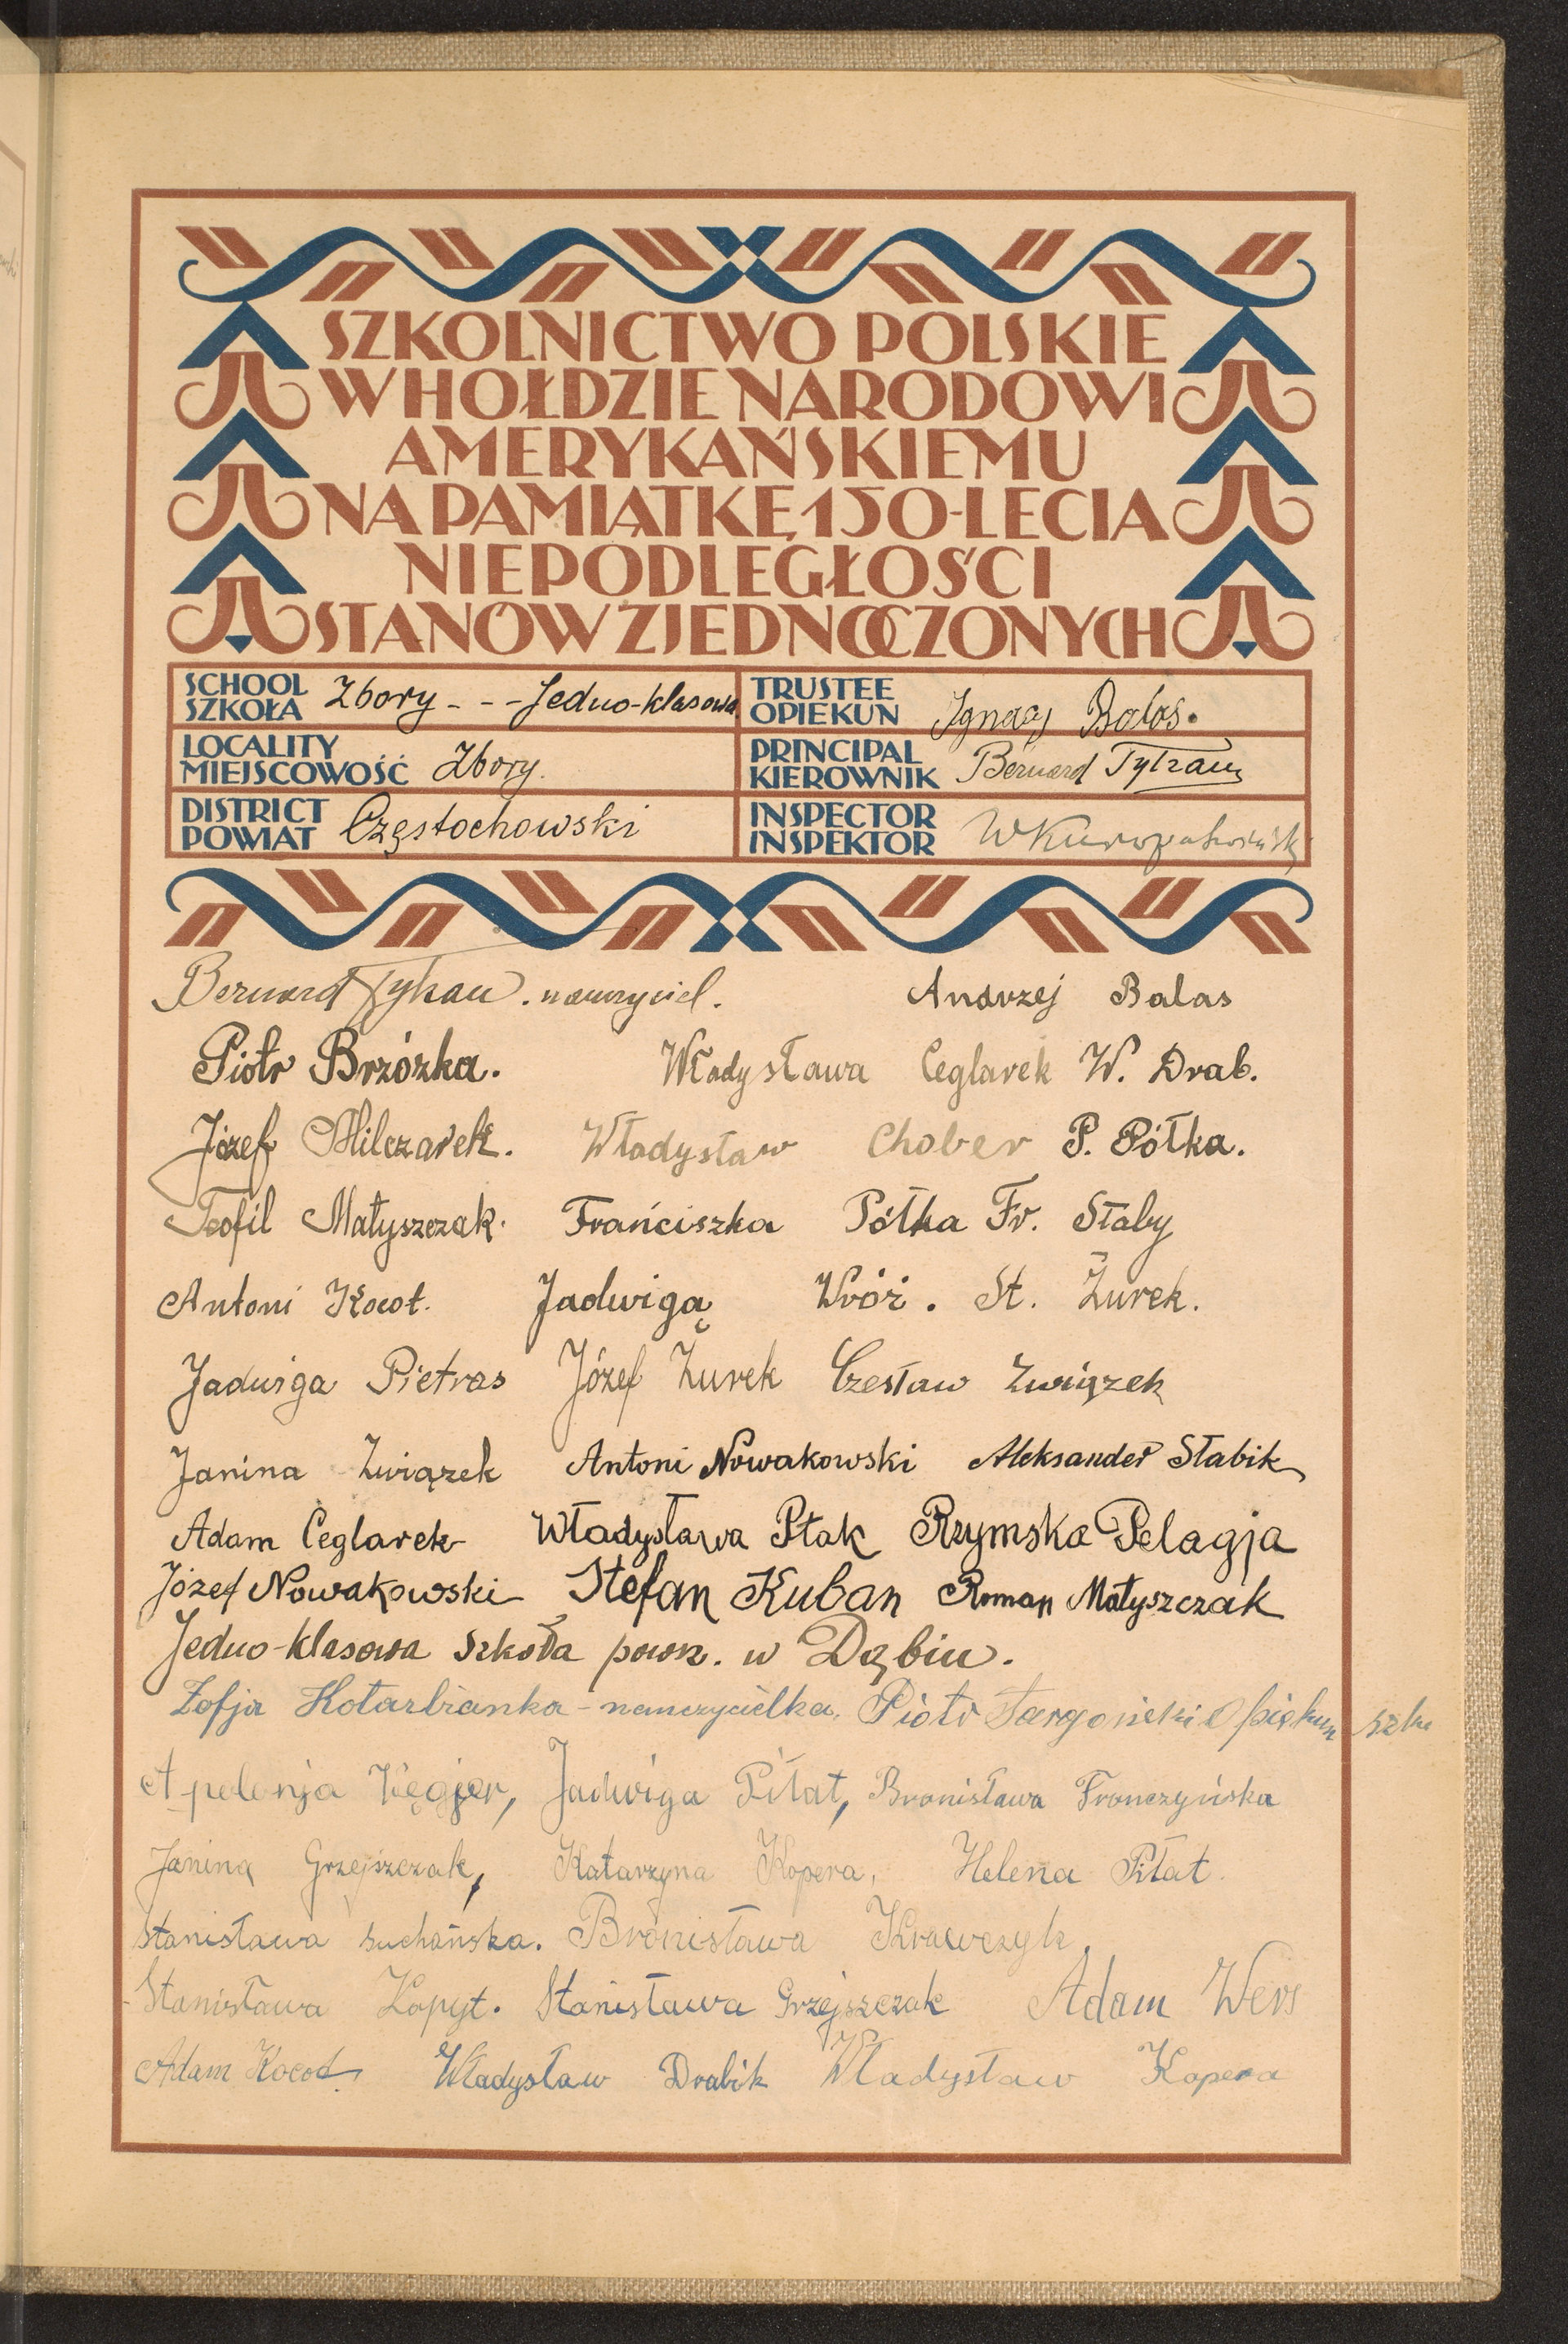 SZKOLNICTWO POLSKIE
W HOŁDZIE NARODOWI
AMERYKAŃSKIEMU
NA PAMIĄTKĘ 150-LECIA
NIEPODLEGŁOŚCI
STANÓW ZJEDNOCZONYCH
SCHOOL
SZKOŁA Zbory - - - Jedno-klasowa
TRUSTEE
OPIEKUN Ignacy Balas.
LOCALITY
MIEJSCOWOŚĆ Zbory.
PRINCIPAL
KIEROWNIK Bernard
DISTRICT
POWIAT Częstochowski
INSPECTOR
INSPEKTOR
Bernard nauczyciel. Andrzej Balas
Piotr Brzózka. Władysława Ceglarek W. Drab.
Józef Milczarek. Władysław Chober P. Półka.
Teofil Małyszczak. Frańciszka Półka Fr. Słaby
Antoni Kocot. Jadwigą Wróż. St. Żurek.
Jadwiga Pietras Józef Żurek Czesław Związek
Janina Związek Antoni Nowakowski Aleksander Słabik
Adam Ceglarek Władysława Ptak Rzymska Pelagja
Józef Nowakowski Stefan Kuban Roman Małyszczak
Jedno-klasowa szkoła pow. w Dąbiu.
Zofja Kotarbianka - nauczycielka. Piotr Targoński Opiekun szk
Apolonja Węgier, Jadwiga Piłat, Bronisława Fronczyńska
Janina Grzejszczak, Katarzyna Kopera, Helena Piłat.
Stanisława Suchańska. Bronisława Krawczyk.
Stanisława Kopyt. Stanisława Grzejszczak Adam Wers
Adam Kocot. Władysław Drabik Władysław Kopera